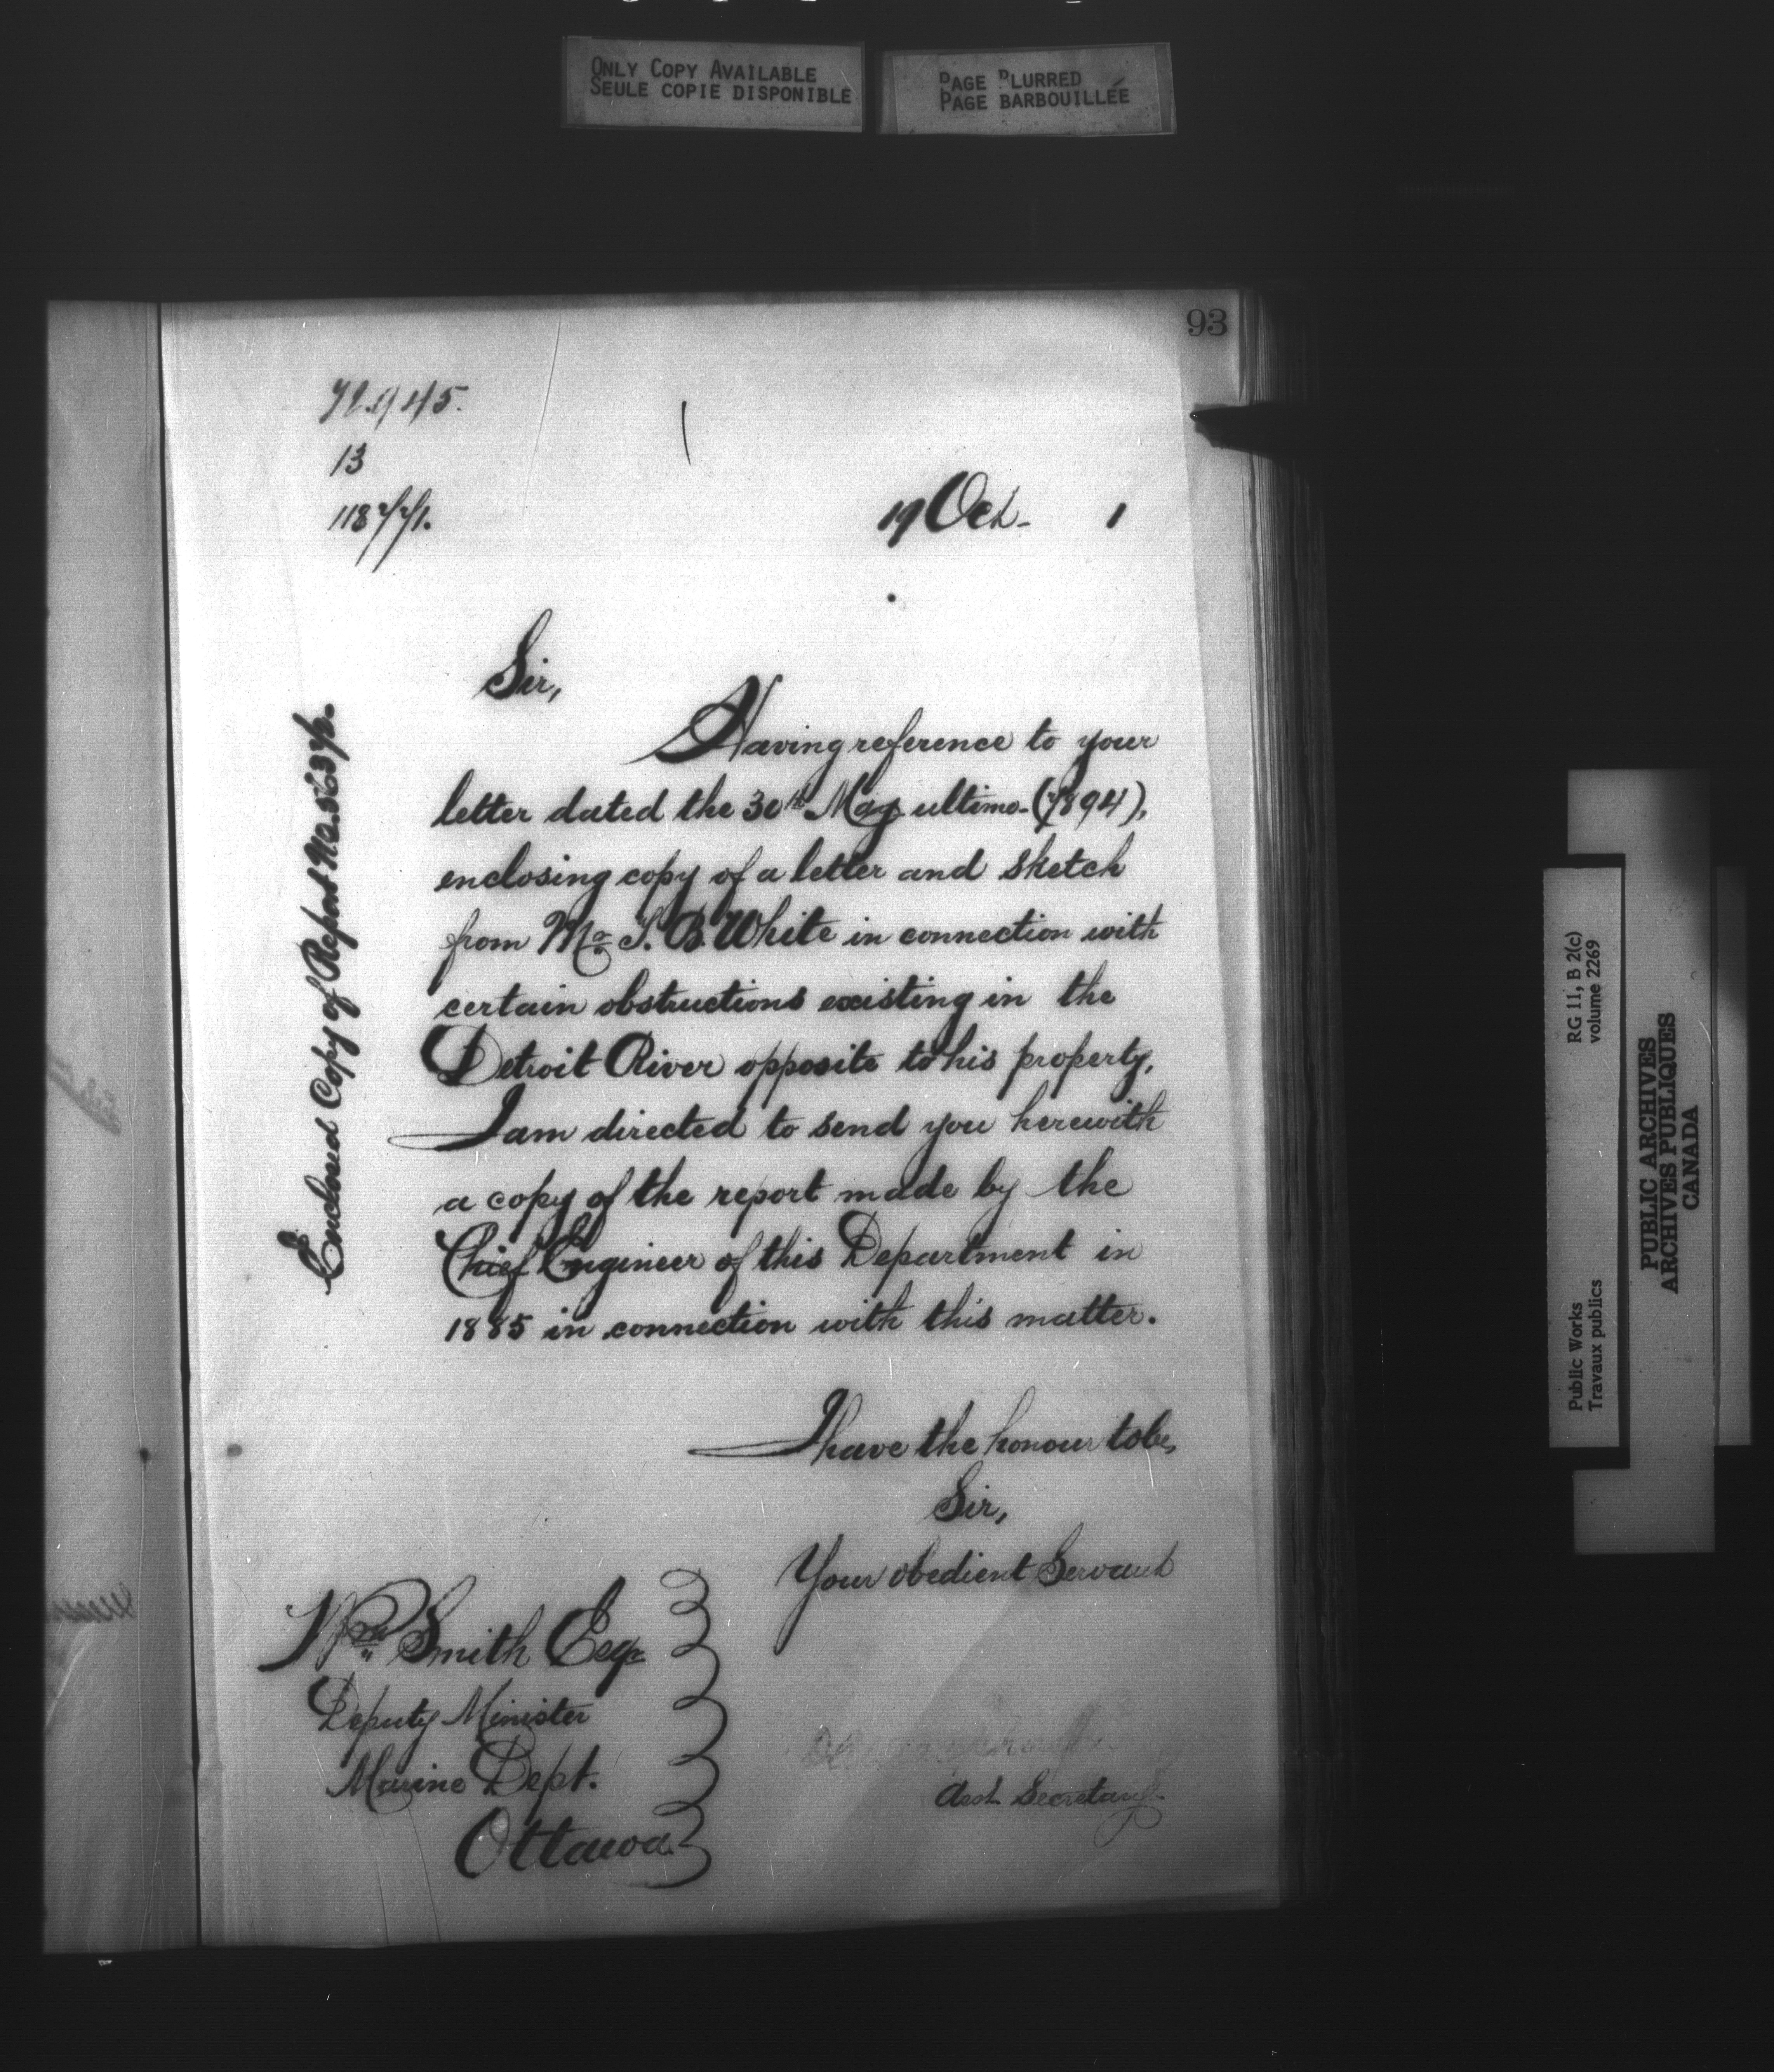 ONLY COPY AVAILABLE
SEULE COPIE DISPONIBLE
PAGE BLURRED
PAGE BARBOUILLÉE
93
13
19 Oct- 1
Sir,
Having reference to your
letter dated the 30th May ultimo (1894),
enclosing copy of a letter and sketch
from Mr. S. B. White in connection with
certain obstructions existing in the
Detroit River opposite to his property,
I am directed to send you herewith
a copy of the report made by the
Chief Engineer of this Department in
1885 in connection with this matter.
I have the honour to be,
Sir,
Your obedient Servant
Asst Secretary
Wm Smith Esqr
Deputy Minister
Marine Dept.
Ottawa
Enclosed Copy of Report No.
RG 11, B 2(c)
volume 2269
Public Works
Travaux publics
PUBLIC ARCHIVES
ARCHIVES PUBLIQUES
CANADA